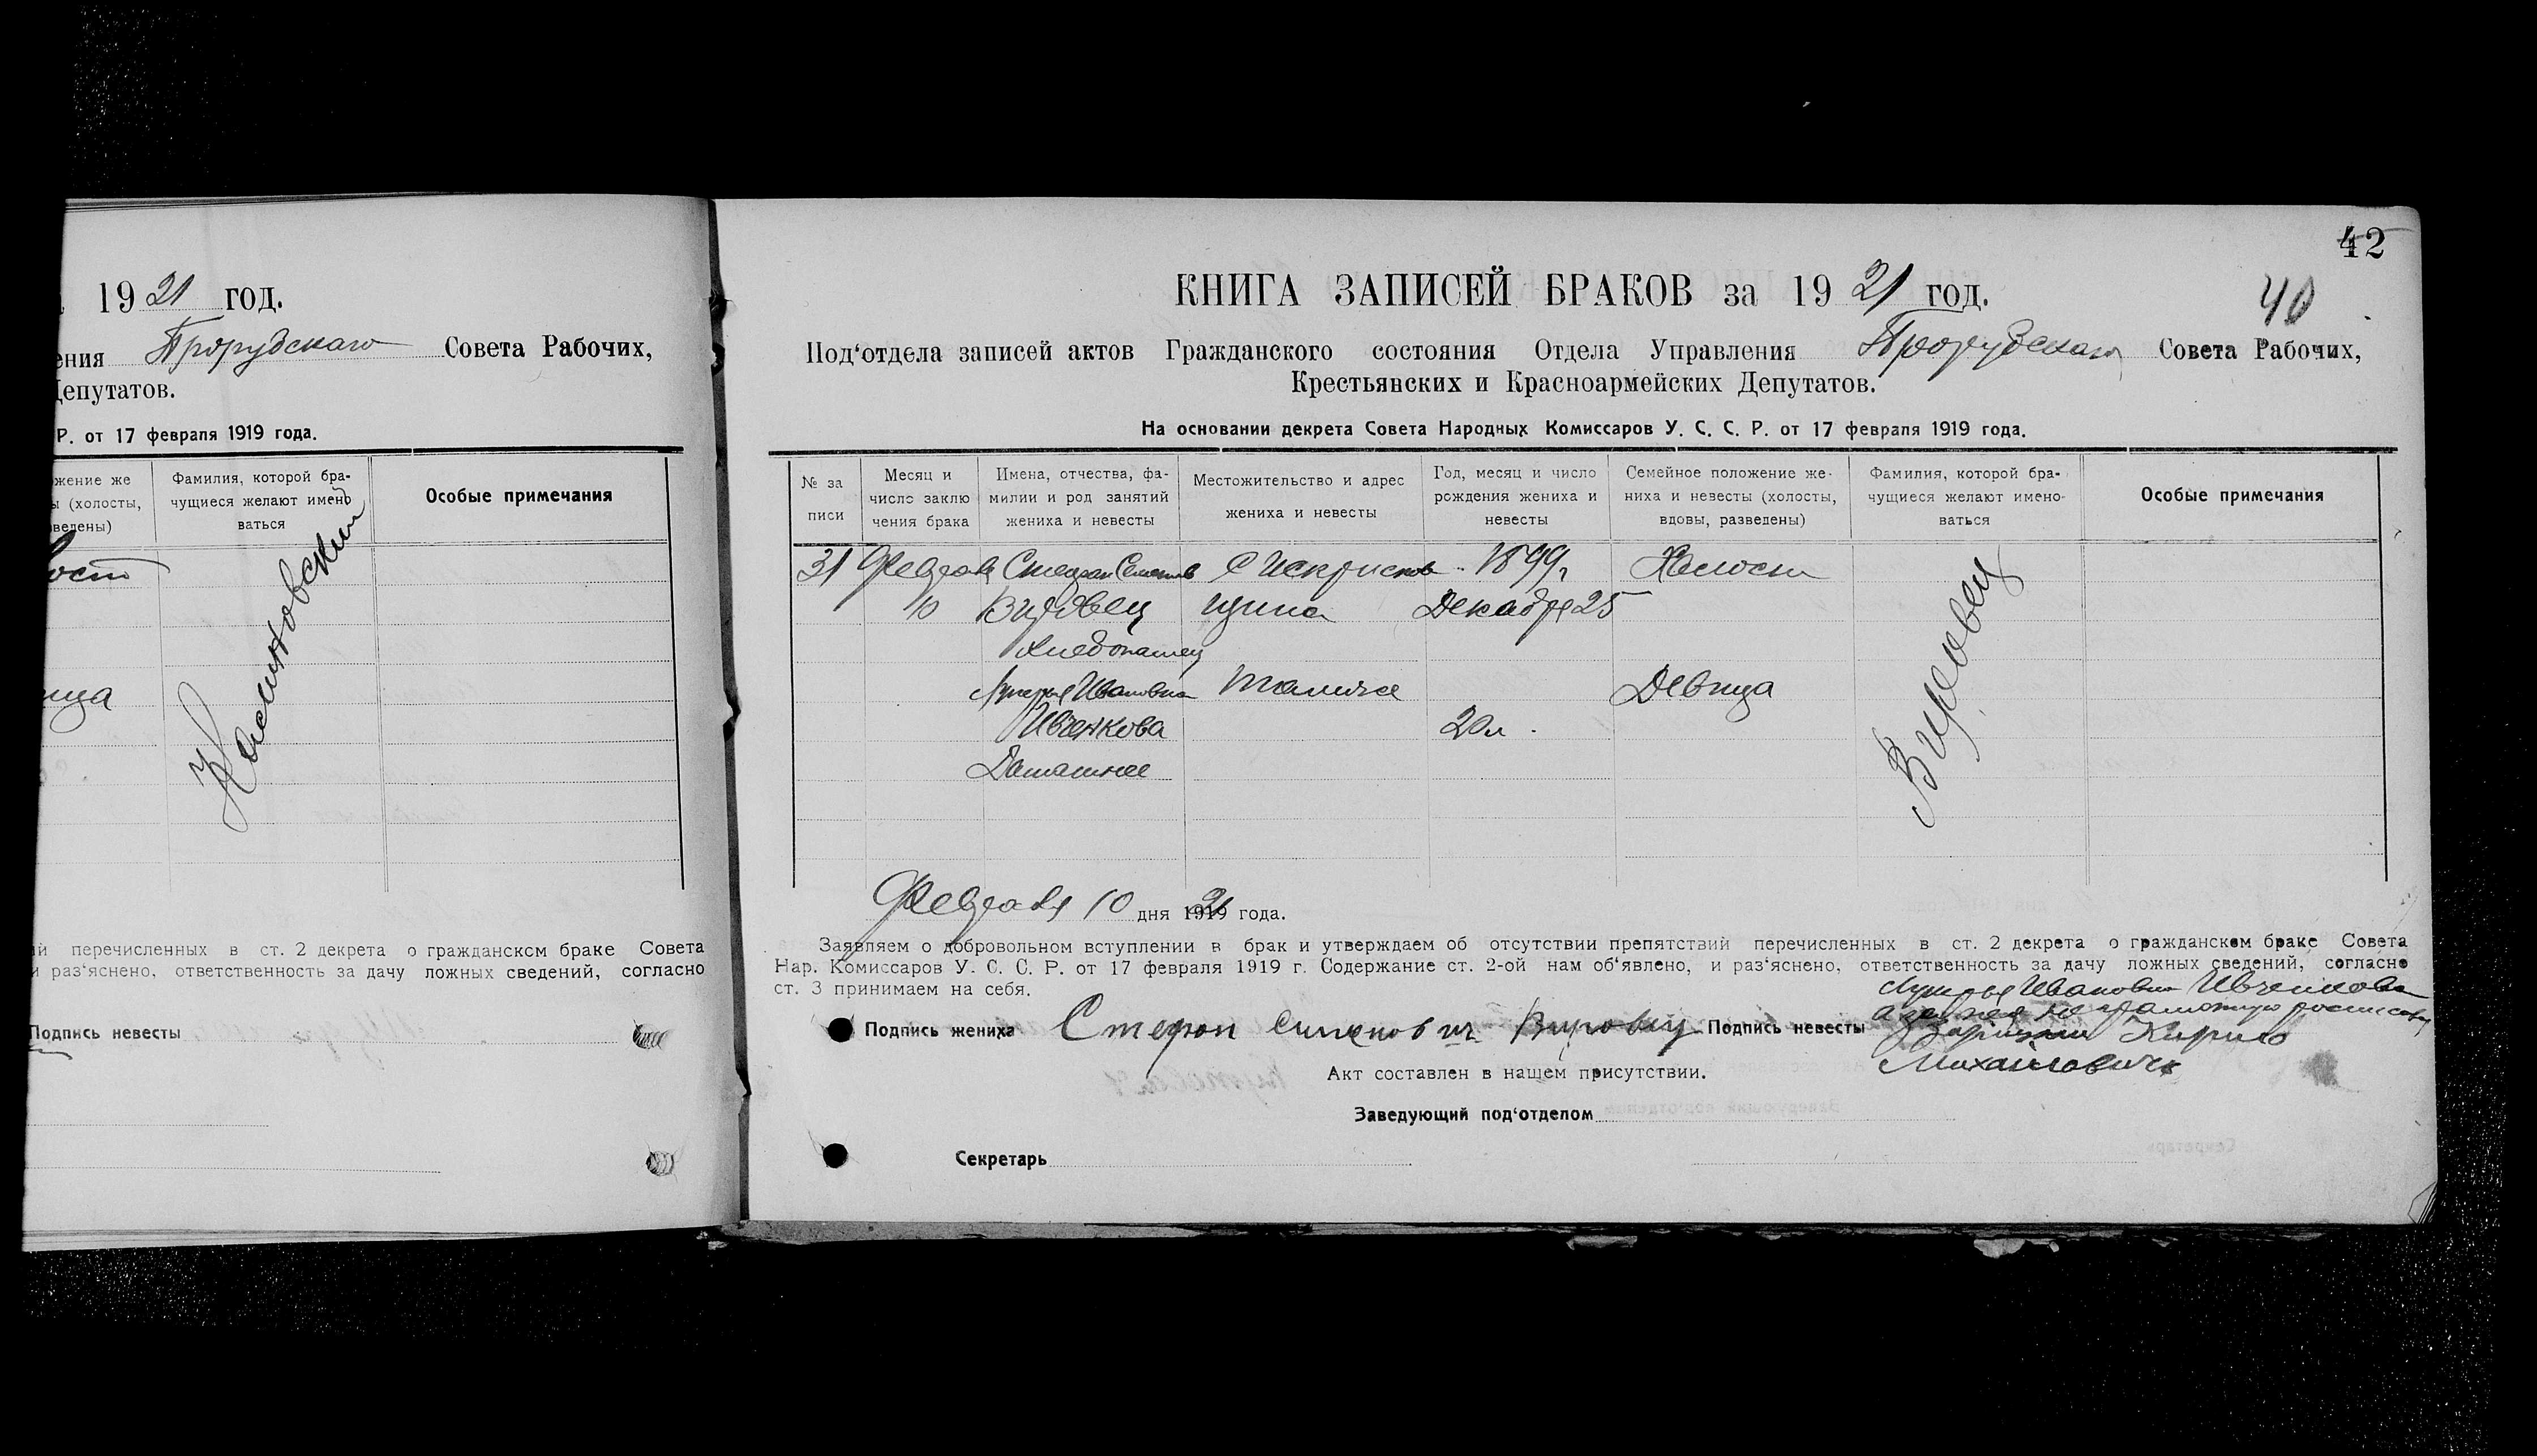 19 21 год.
Совета Рабочих,
Депутатов.
Р. от 17 февраля 1919 года.
Фамилия, которой бра-
чущиеся желают имено
ваться
Особые примечания
перечисленных в ст. 2 декрета о гражданском браке Совета
и раз‘яснено, ответственность за дачу ложных сведений, согласно
Подпись невесты
42
40
КНИГА ЗАПИСЕЙ БРАКОВ за 19 21 год.
Под‘отдела записей актов Гражданского состояния Отдела Управления Совета Рабочих,
Крестьянских и Красноармейских Депутатов.
На основании декрета Совета Народных Комиссаров У. С. С. Р. от 17 февраля 1919 года.
№ за
писи
Месяц и
число заклю
чения брака
Имена, отчества, фа-
милии и род занятий
жениха и невесты
Местожительство и адрес
жениха и невесты
Год, месяц и число
рождения жениха и
невесты
Семейное положение же-
ниха и невесты (холосты,
вдовы, разведены)
Фамилия, которой бра-
чущиеся желают имено-
ваться
Особые примечания
31 Февраля Стефан С Искрисков 1899 г Холост
10 Вировец щина Декабря 25
Хлебопашец
Ивановна Девица
Ивченкова 20 л.
Вировец
Февраля 10 дня 1921 года.
Заявляем о добровольном вступлении в брак и утверждаем об отсутствии препятствий перечисленных в ст. 2 декрета о гражданском браке Совета
Нар. Комиссаров У. С. С. Р. от 17 февраля 1919 г. Содержание ст. 2-ой нам об‘явлено, и раз‘яснено, ответственность за дачу ложных сведений, согласно
ст. 3 принимаем на себя.
Ивановна Ивченкова
Подпись жениха Стефон Сименович Вировец Подпись невесты
Кирило
Михайлович
Акт составлен в нашем присутствии.
Заведующий под‘отделом
Секретарь